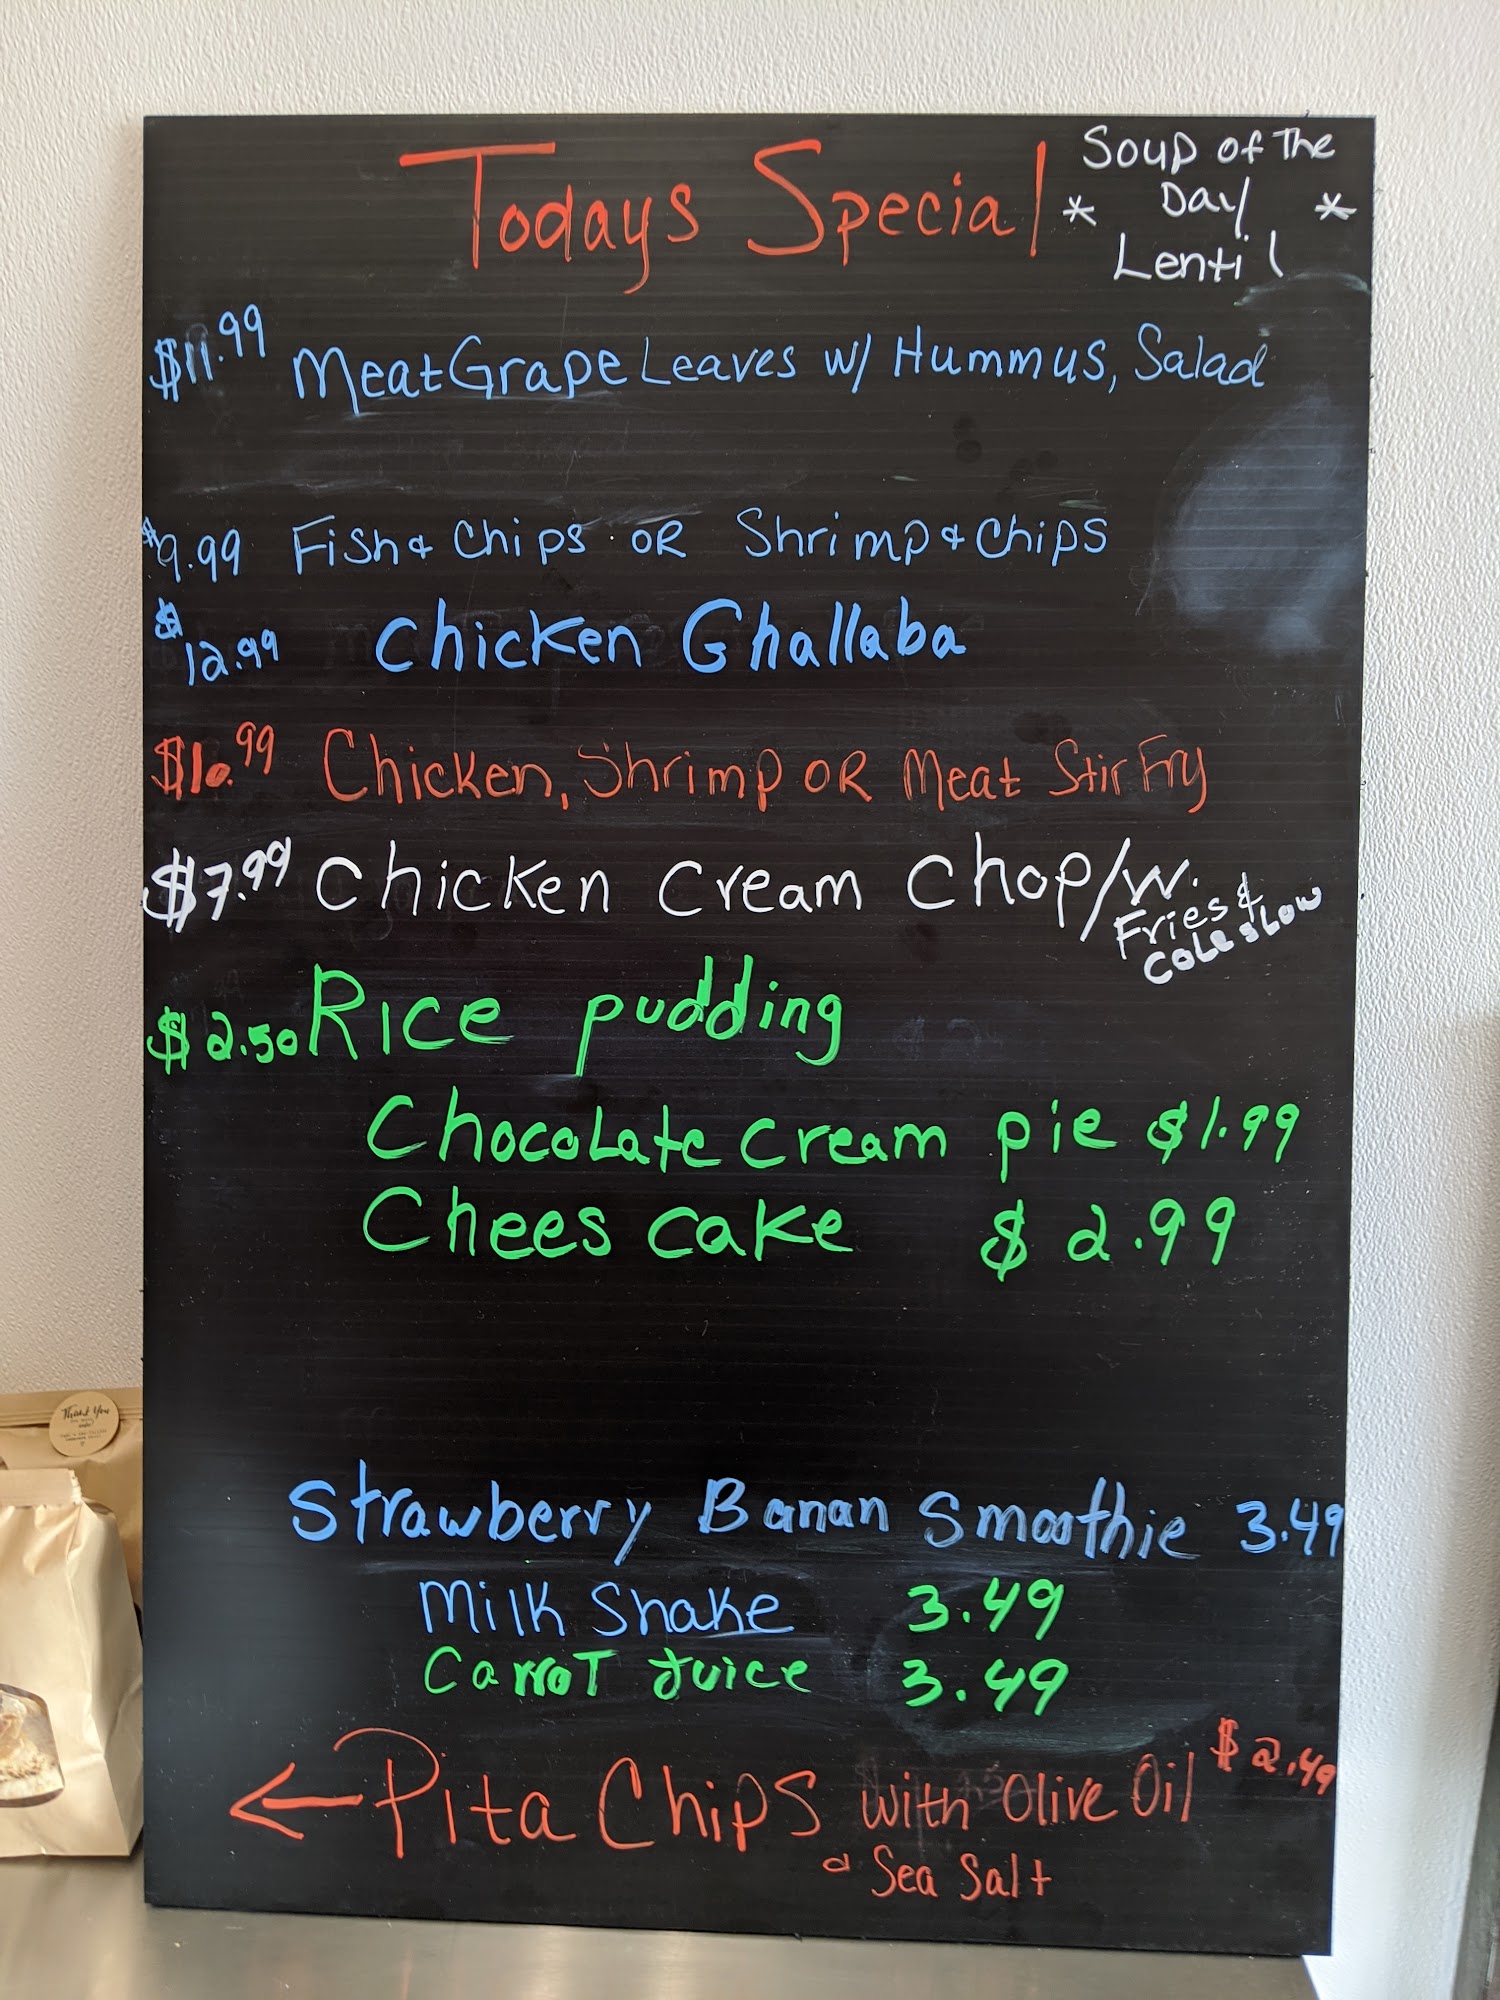 Todays Special
Soup of The
* Day *
Lentil
$11.99 Meat Grape Leaves w/ Hummus, Salad
$9.99 Fish & Chips OR Shrimp & Chips
$12.99 Chicken Ghallaba
$10.99 Chicken, Shrimp OR Meat Stir Fry
$7.99 Chicken Cream Chop/W.
Fries &
Coleslow
$2.50 Rice pudding
Chocolate cream pie $1.99
Chees cake $2.99
Strawberry Banan Smoothie 3.49
Milk Shake 3.49
Carrot Juice 3.49
← Pita Chips with Olive Oil $2.49
& Sea Salt
Thank You